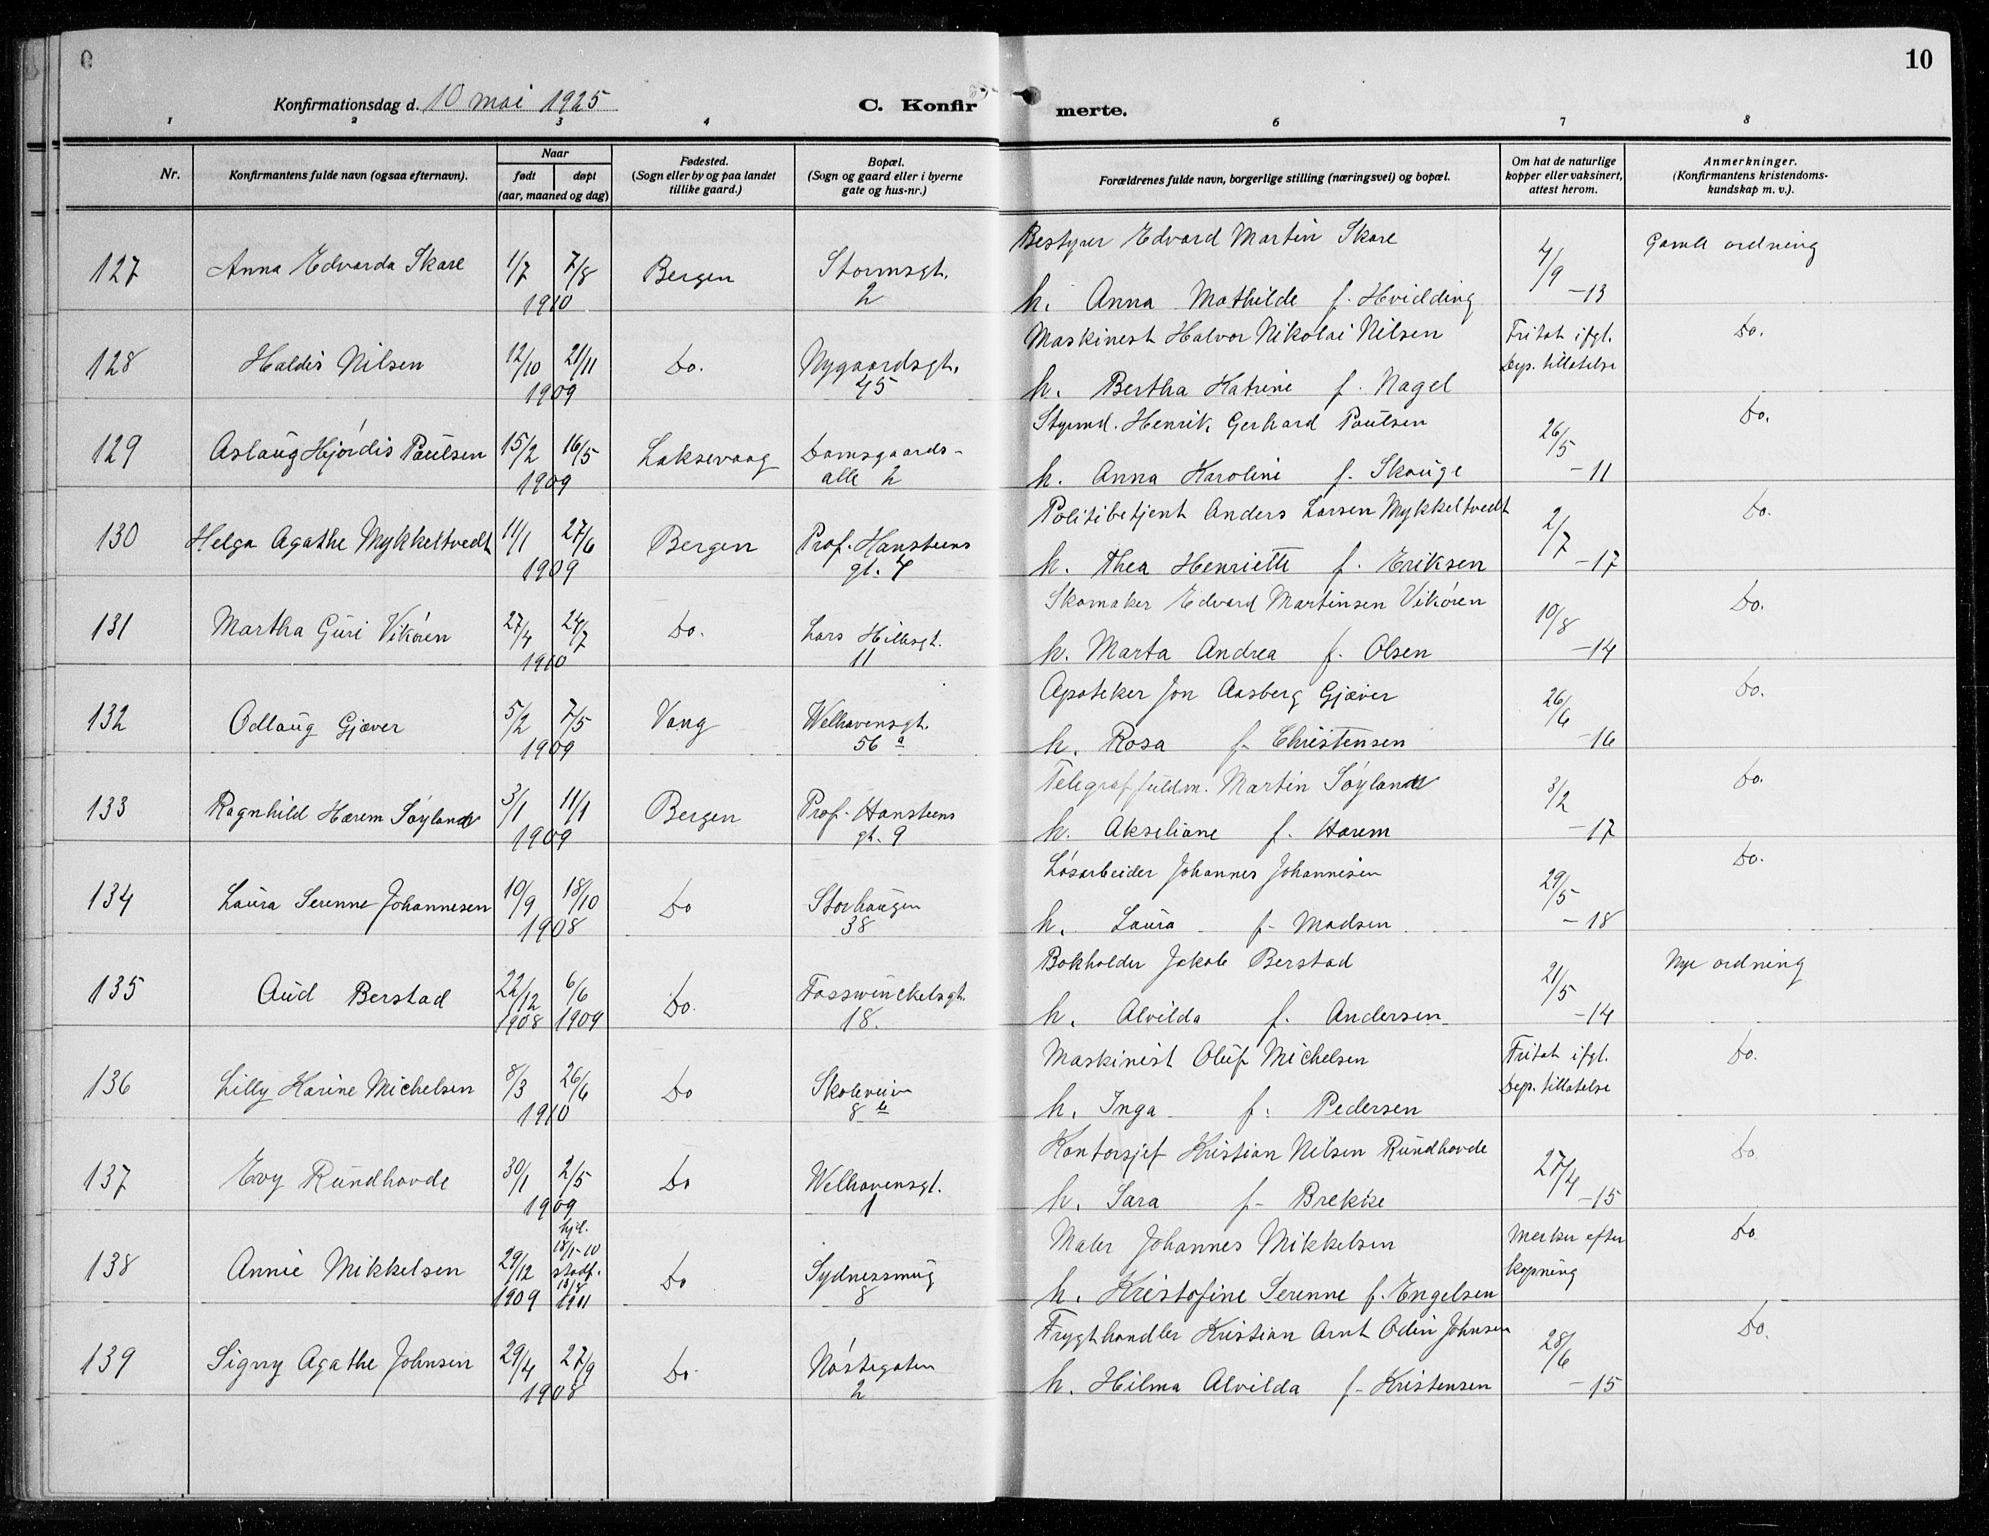 10
Konfirmationsdag d. 10 mai 1925 C. Konfirmerte.
1 2 3 4 6 7 8
Nr. Konfirmantens fulde navn (ogsaa efternavn).
Naar
født døpt
(aar, maaned og dag)
Fødested.
(Sogn eller by og paa landet
tillike gaard.)
Bopæl.
(Sogn og gaard eller i byerne
gate og hus-nr.)
Forældrenes fulde navn, borgerlige stilling (næringsvei) og bopæl.
Om hat de naturlige
kopper eller vaksinert,
attest herom.
Anmerkninger.
(Konfirmantens kristendoms-
kundskap m. v.).
Bestyrer Edvard Martin Skare Gamle ordning
127 Anna Edvarda Skare 1/7 7/8 Bergen Stormsgt. 4/9
1910 2 h. Anna Mathilde f. Hvidding -13
Maskinest Halvor Nikolai Nilsen Fritat ifgl. Do.
128 Haldis Nilsen 12/10 21/11 Do. Nygaardsgt. Dep. tillatelse
1909 45 h. Bertha Katrine f. Nagel
Styrmd. Henrik Gerhard Paulsen Do.
129 Aslaug Hjørdis Paulsen 15/2 16/5 Laksevaag Damsgaards- 26/5
1909 alle 2 h. Anna Karoline f. Skauge -11
Politibetjent Anders Larsen Mykkeltvedt Do.
130 Helga Agathe Mykkeltvedt 11/1 27/6 Bergen Prof. Hansteens 2/7
1909 gt. 7 h. Thea Henriette f. Eriksen -17
Skomaker Edvard Martinsen Vikøren Do.
131 Martha Guri Vikøren 27/4 24/7 Do. Lars Hillesgt. 10/8
1910 11 h. Marta Andrea f. Olsen -14
Apoteker Jon Aasberg Gjæver Do.
132 Odlaug Gjæver 5/2 7/5 Vang Welhavensgt. 26/6
1909 56 a h. Rosa f. Christensen -16
Telegraffuldm. Martin Søyland Do.
133 Ragnhild Hærem Søyland 3/1 11/1 Bergen Prof. Hansteens 3/2
1909 gt. 9 h. Akseliane f. Harem -17
Løsarbeider Johannes Johannesen Do.
134 Laura Serenne Johannesen 10/9 18/10 Do Storhaugen 29/5
1908 38 h. Laura f. Madsen -18
Bokholder Jakob Berstad Nye ordning
135 Aud Berstad 22/12 6/6 Do. Fosswinckelsgt. 21/5
1908 1909 18. h. Alvilda f. Andersen -14
Maskinist Oluf Michelsen Fritat ifgl. Do.
136 Lilly Karine Michelsen 8/3 26/6 Do Skoleveien Dep. tillatelse
1910 8 b h. Inga f. Pedersen
Kontorsjef Kristian Nilsen Rundhovde Do.
137 Evy Rundhovde 30/1 2/5 Do Welhavensgt. 27/4
1909 1 h. Sara f. Brekke -15
hjd.
18/1-10 Maler Johannes Mikkelsen Merker efter Do
138 Annie Mikkelsen 29/12 stadf. Do Sydnessmug kopning
1909 1911 8 h. Kristofine Serenne f. Engelsen
Frugthandler Kristian Arnt Odin Johnsen Do.
139 Signy Agathe Johnsen 29/4 27/9 Do. Nøstegaten 28/6
1908 2 h. Hilma Alvilda f. Kristensen -15